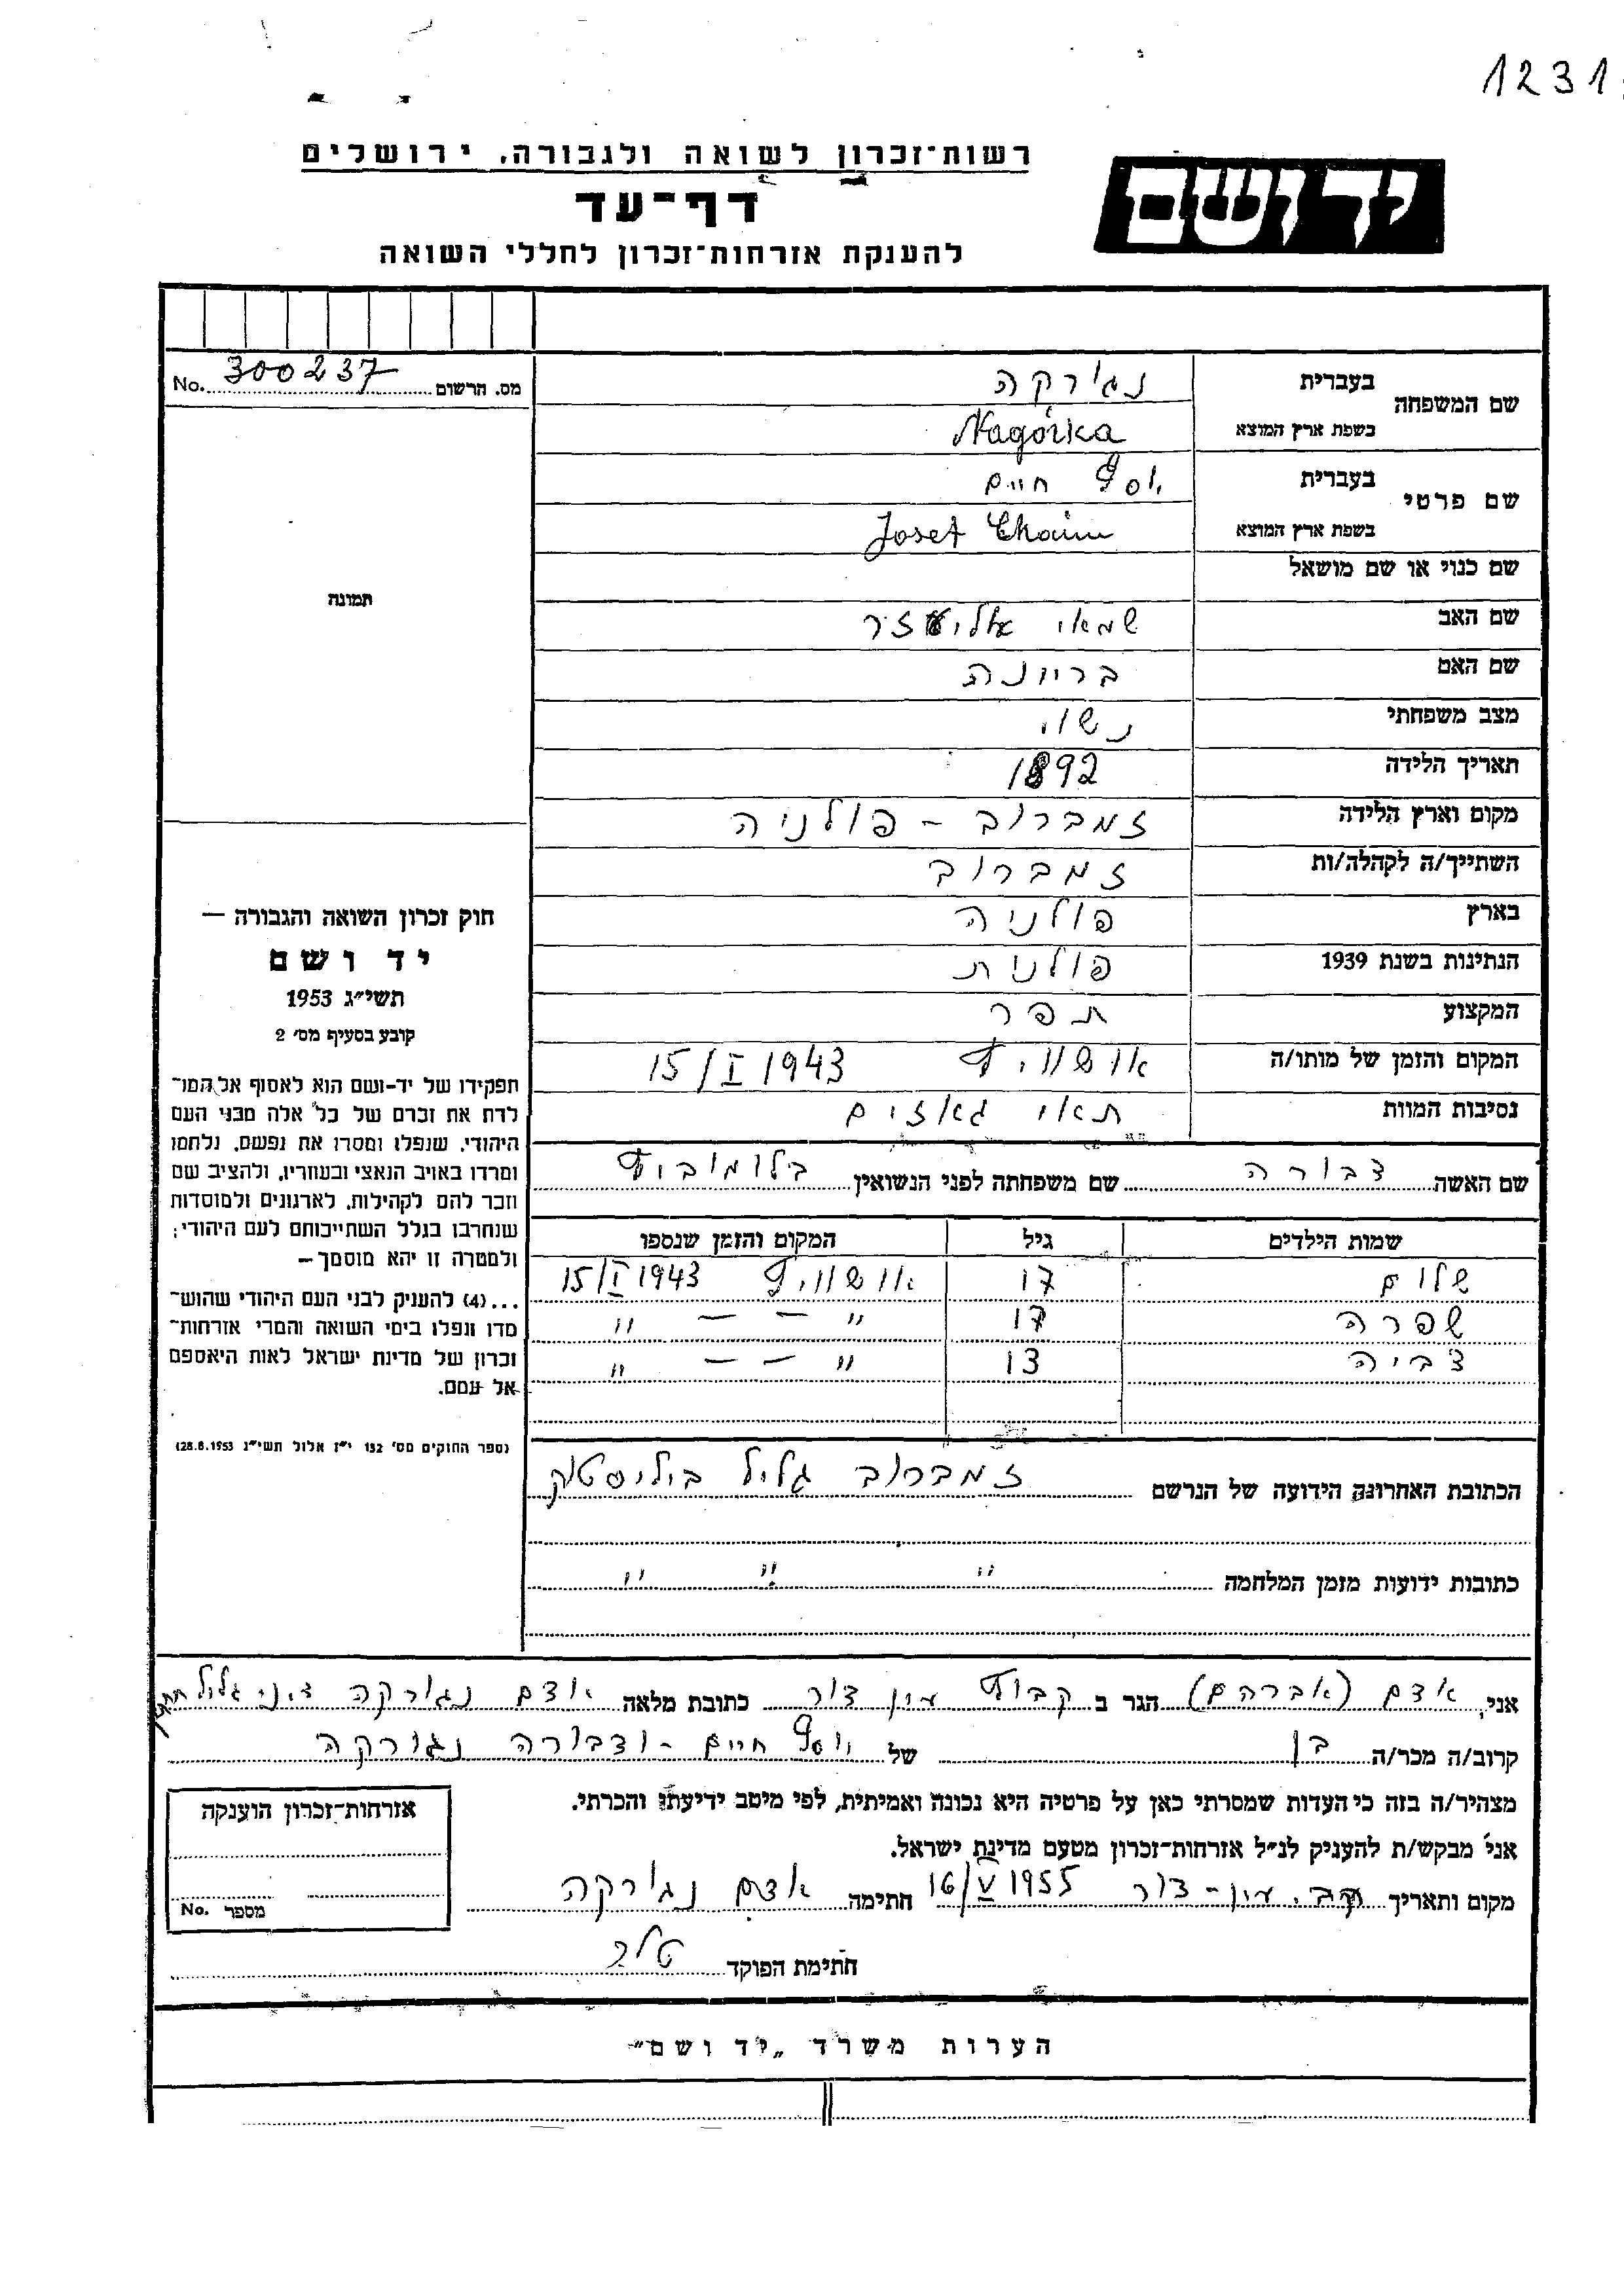 1231
רשות־זכרון לשואה ולגבורה, ירושלים
יד ושם
דף־עד
להענקת אזרחות־זכרון לחללי השואה
מס. הרשום No. 300237
שם המשפחה
בעברית נגורקה
בשפת ארץ המוצא Nagórka
שם פרטי
בעברית יוסף חיים
בשפת ארץ המוצא Josef Chaim
שם כנוי או שם מושאל
שם האב שמאי אליעזר
שם האם בריינה
מצב משפחתי נשוי
תאריך הלידה 1892
מקום וארץ הלידה זמברוב - פולניה
השתייך/ה לקהלה/ות זמברוב
בארץ פולניה
הנתינות בשנת 1939 פולנית
המקצוע תפר
המקום והזמן של מותו/ה אושויץ 15/I 1943
נסיבות המוות תאי גאזים
תמונה
חוק זכרון השואה והגבורה —
יד ושם
תשי״ג 1953
קובע בסעיף מס׳ 2
תפקידו של יד-ושם הוא לאסוף אל המו־
לדת את זכרם של כל אלה מבני העם
היהודי, שנפלו ומסרו את נפשם, נלחמו
ומרדו באויב הנאצי ובעוזריו, ולהציב שם
וזכר להם לקהילות, לארגונים ולמוסדות
שנחרבו בגלל השתייכותם לעם היהודי;
ולמטרה זו יהא מוסמך—
...(4) להעניק לבני העם היהודי שהוש־
מדו ונפלו בימי השואה והמרי אזרחות־
זכרון של מדינת ישראל לאות היאספם
אל עמם.
(ספר החוקים מס׳ 132 י״ז אלול תשי״ג 28.8.1953)
שם האשה דבורה שם משפחתה לפני הנשואין בלומוביץ
שמות הילדים גיל המקום והזמן שנספו
שלום 17 אושויץ 15/I 1943
שפרה 17 " — — "
צביה 13 " — — "
הכתובת האחרונה הידועה של הנרשם זמברוב גליל ביליסטוק
כתובות ידועות מזמן המלחמה " " "
אני, אדם (אברהם) הגר ב קבוץ עין דור כתובת מלאה אדם נגורקה ד.נ. גליל תחתון
קרוב/ה מכר/ה בן של יוסף חיים - ודבורה נגורקה
מצהיר/ה בזה כי העדות שמסרתי כאן על פרטיה היא נכונה ואמיתית, לפי מיטב ידיעתי והכרתי.
אני מבקש/ת להעניק לנ״ל אזרחות־זכרון מטעם מדינת ישראל.
מקום ותאריך קב. עין-דור 16/V 1955 חתימה אדם נגורקה
חתימת הפוקד
אזרחות־זכרון הוענקה
מספר No.
הערות משרד „יד ושם״